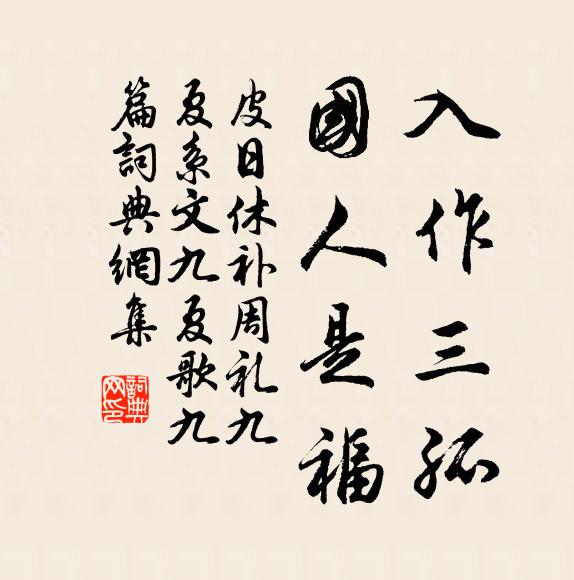 入作三孤
國人是福
皮日休补周礼九
夏系文九夏歌九
篇詞典網集
詞典
网印